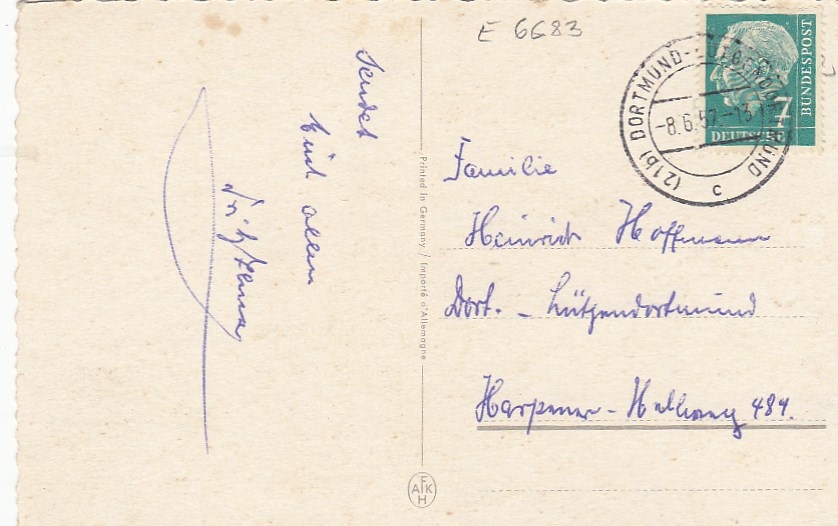 E 6683
(21b) DORTMUND-
-8.6.57.-13
c
7
DEUTSCHE
BUNDESPOST
Sendet
Euch allen
Printed in Germany / Importé d'Allemagne
AFKH
Familie
Heinrich Hoffmann
Dort. - Lütgendortmund
Harpener - Hellweg 484.